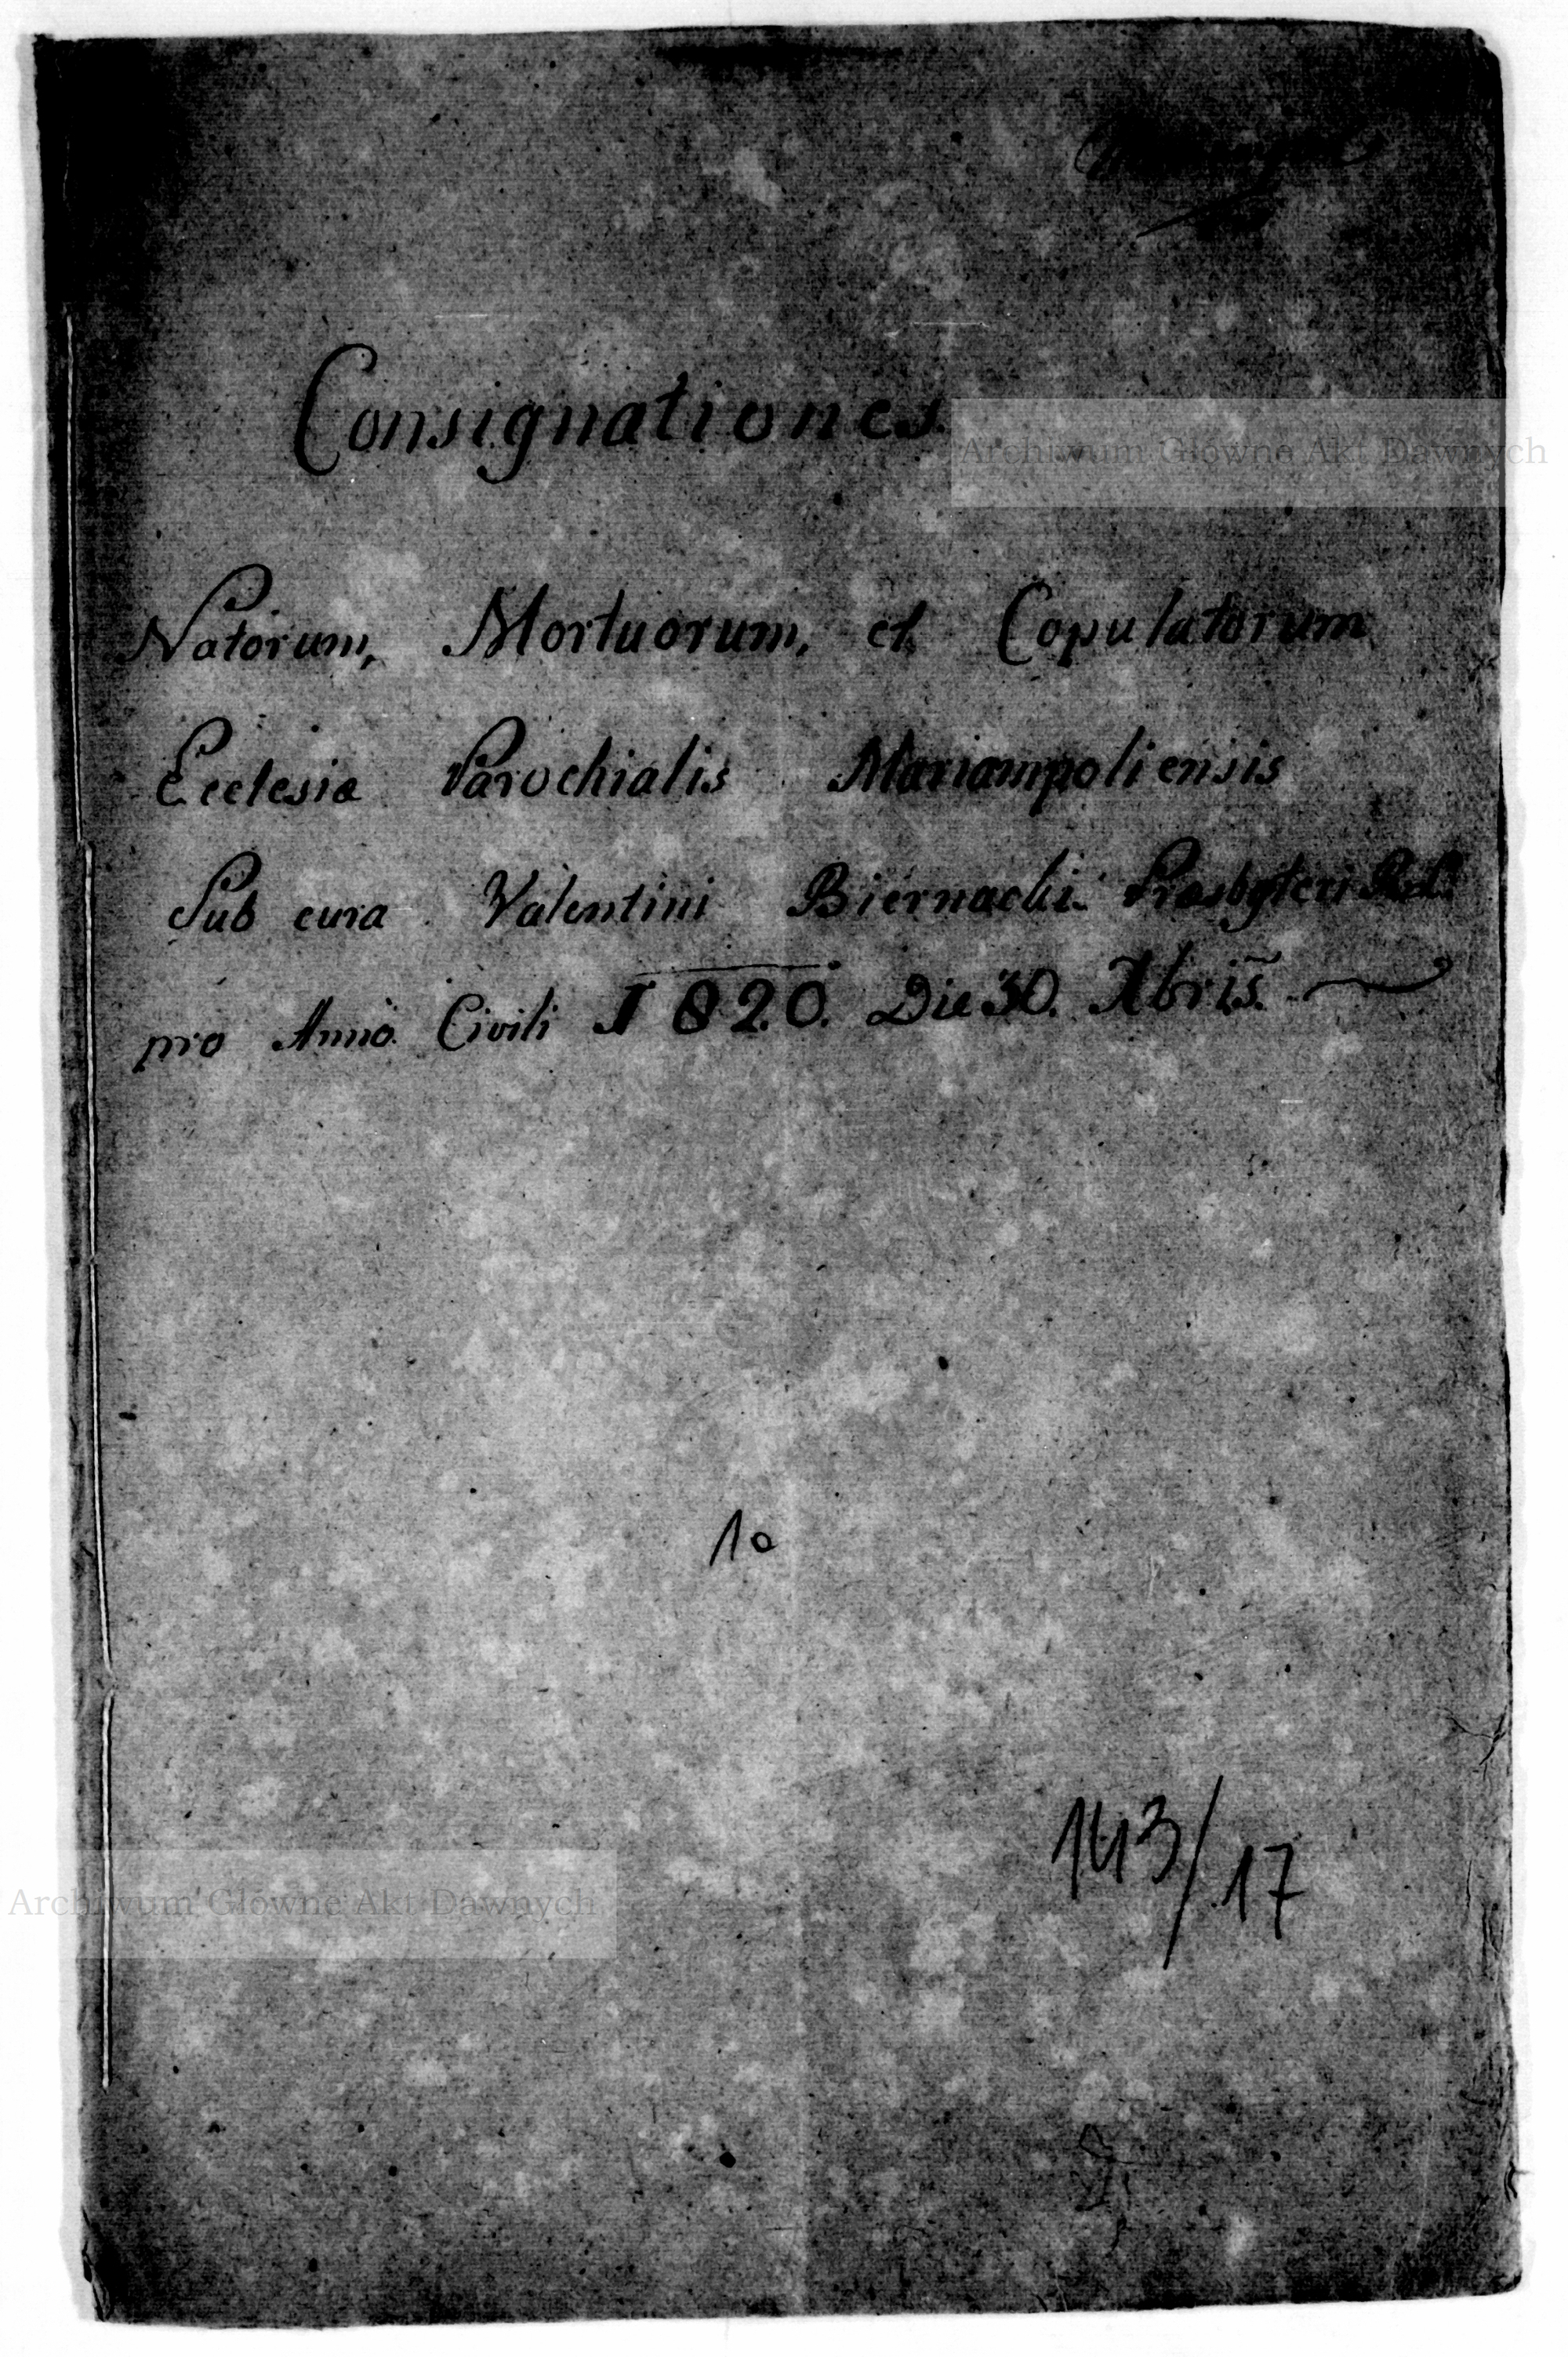 Consignationes.
Archiwum Główne Akt Dawnych
Natorum, Mortuorum, et Copulatorum
Ecclesiæ Parochialis Mariampoliensis
Sub cura Valentini Biernacki Præsbyteri
pro Anno Civili 1820. Die 30. Xbris.
10
143/17
Archiwum Główne Akt Dawnych